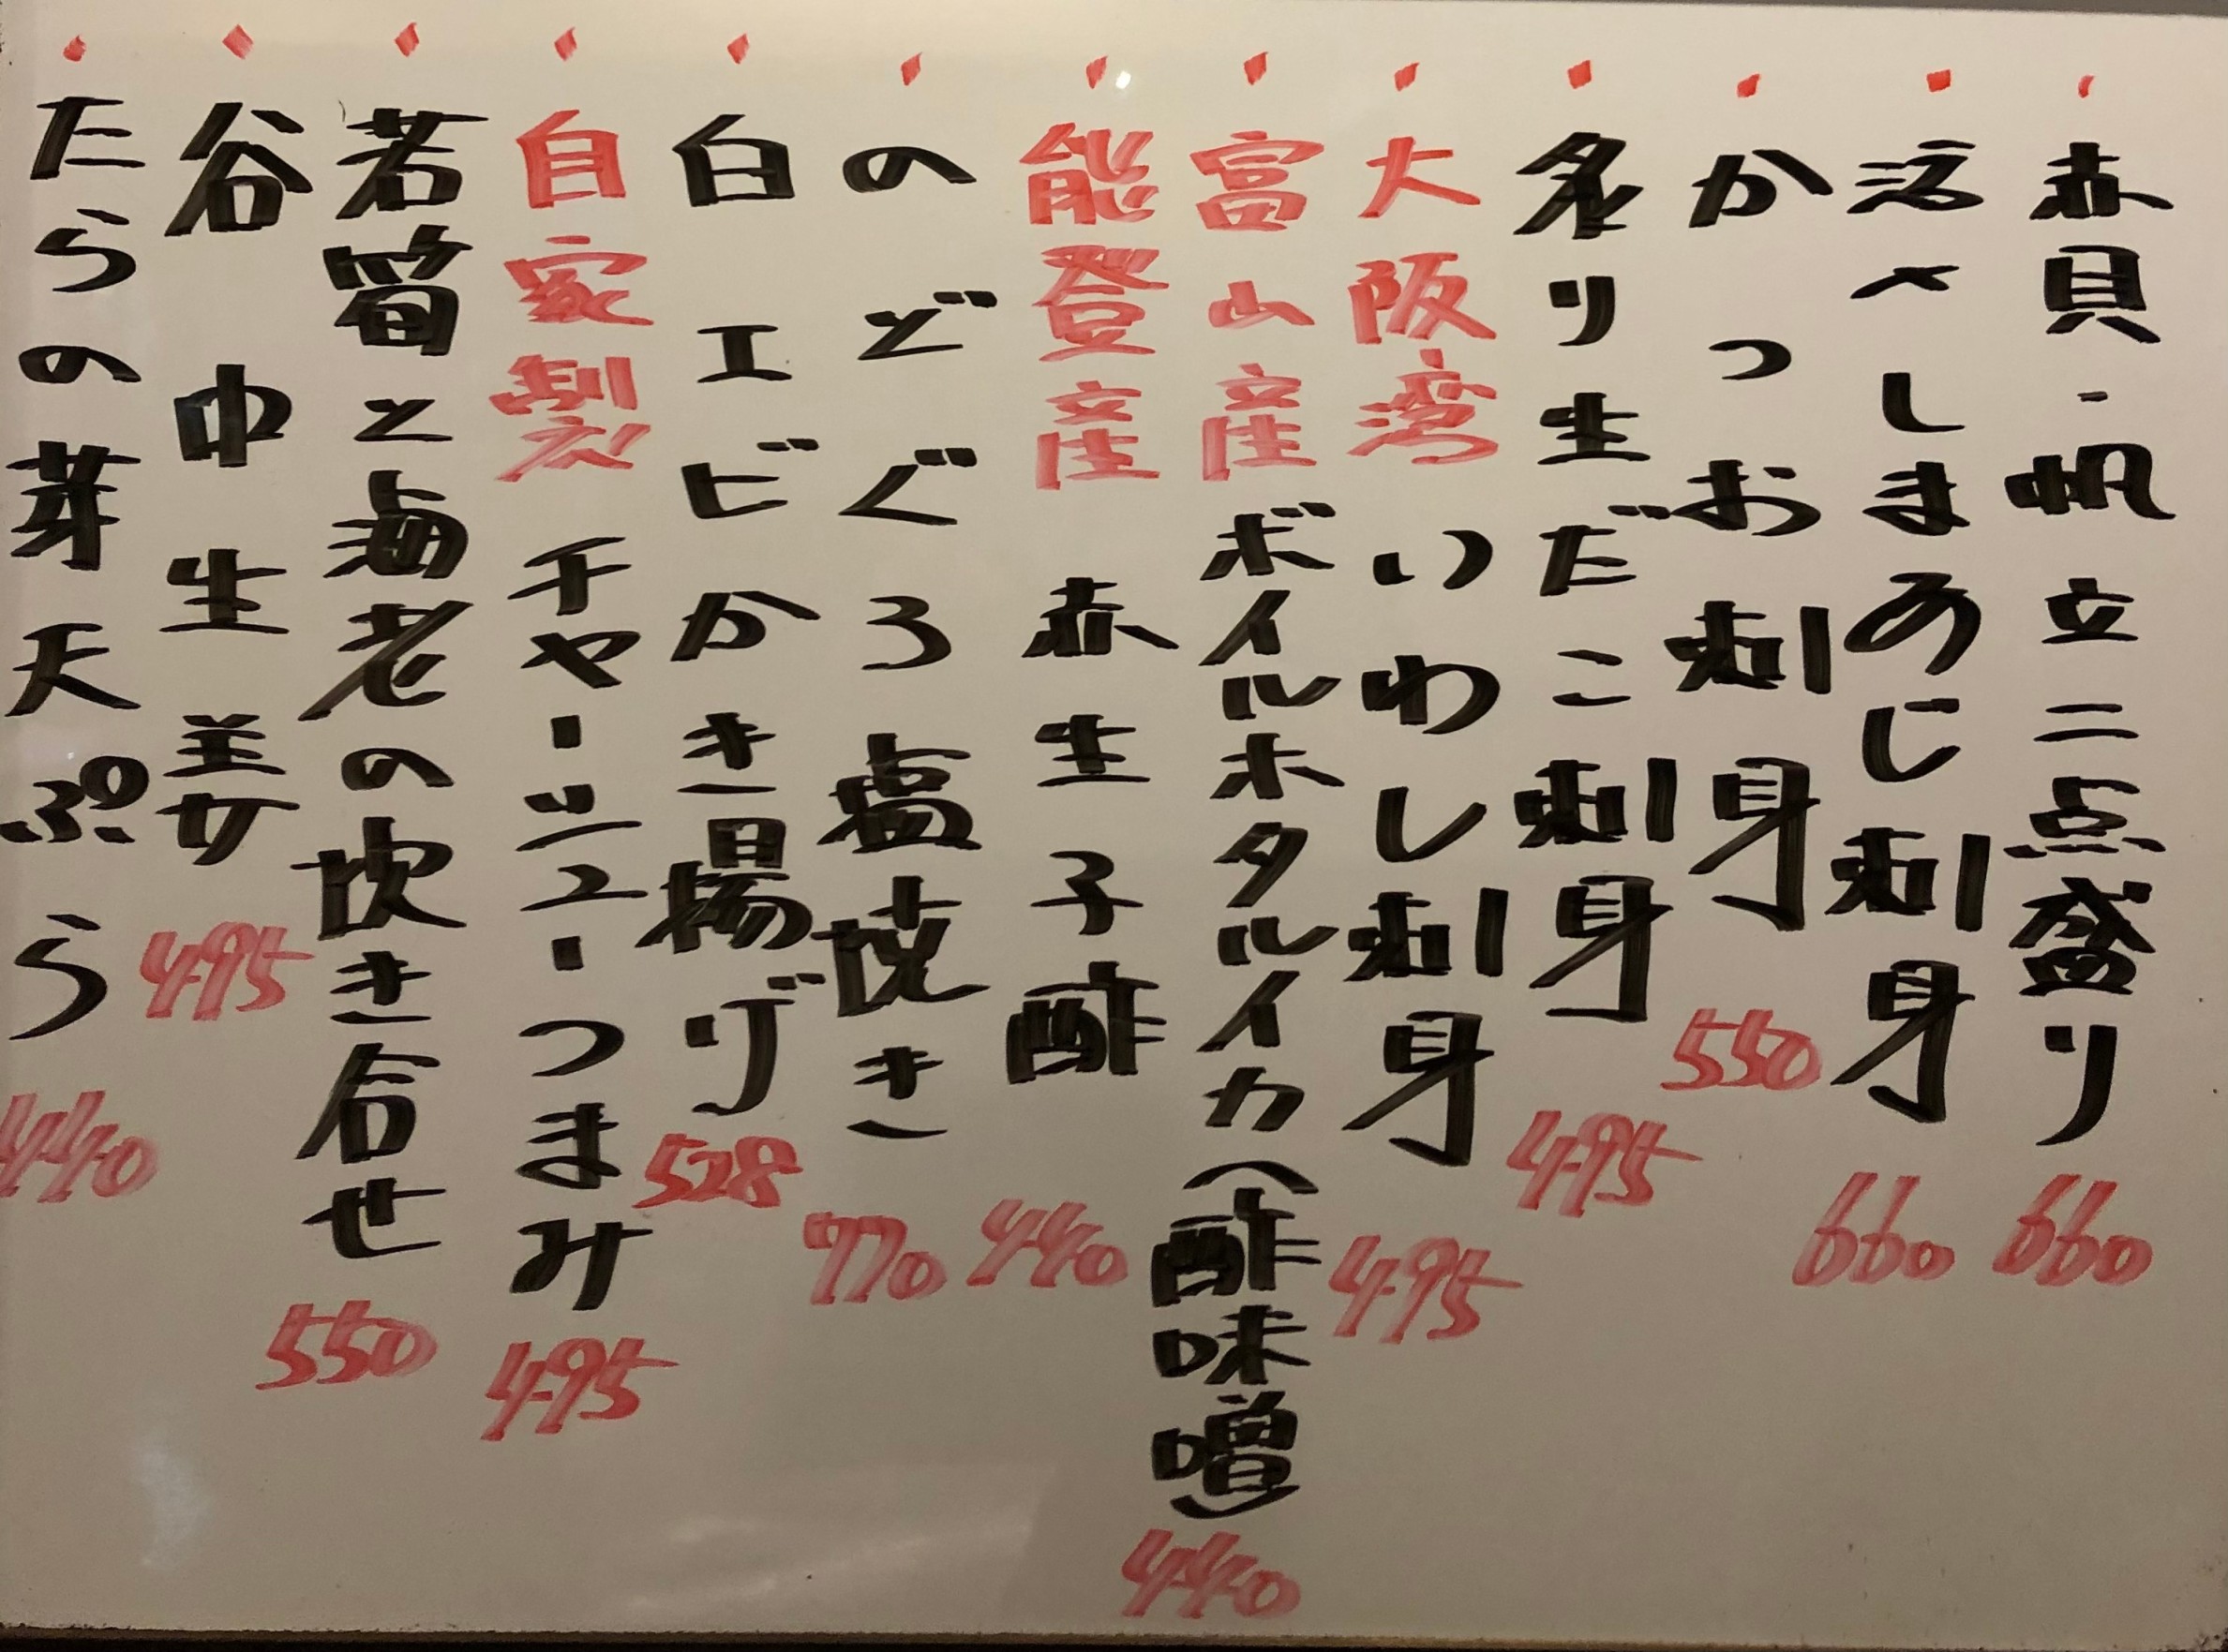 赤貝・帆立二点盛り 660
活〆しまあじ刺身 660
かつお刺身 550
炙り生だこ刺身 495
大阪湾いわし刺身 495
富山産ボイルホタルイカ(酢味噌) 440
能登産赤生子酢 440
のどぐろ塩焼き 770
白エビかき揚げ 528
自家製チャーシューつまみ 495
若筍と海老の炊き合せ 550
谷中生姜 495
たらの芽天ぷら 440